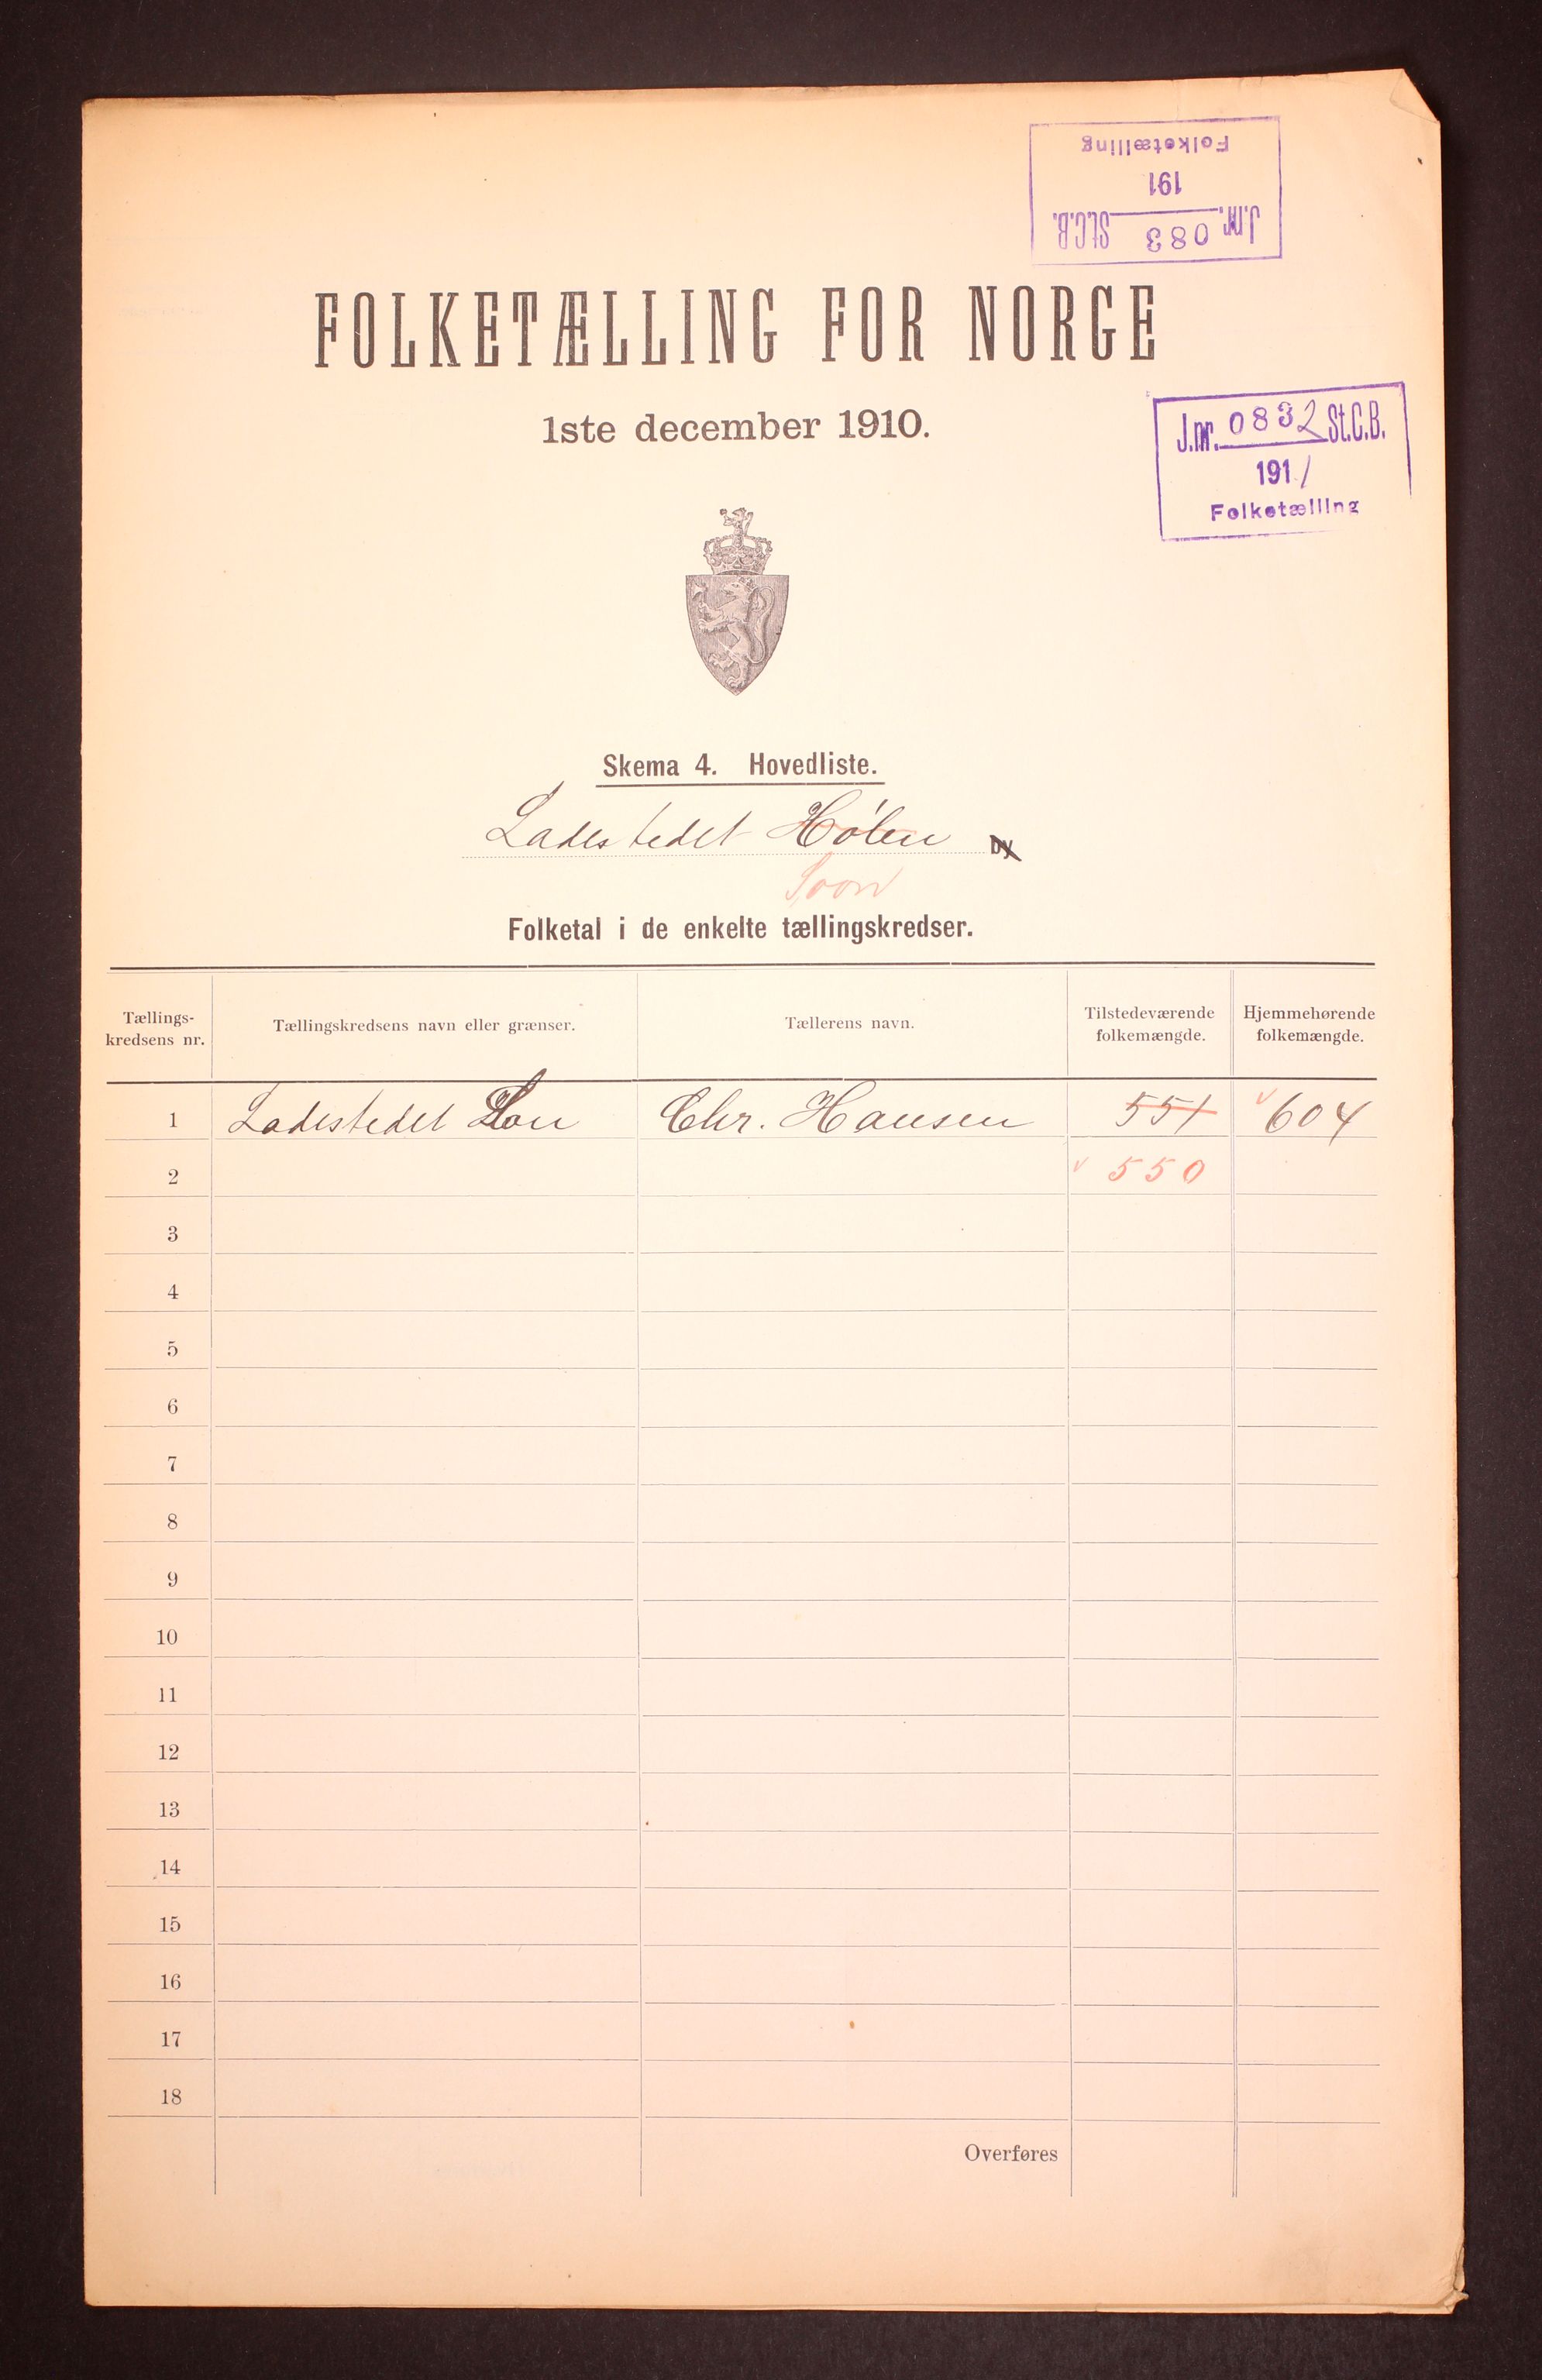 Folketælling
191
J.nr. 083 St.C.B.
FOLKETÆLLING FOR NORGE
1ste december 1910.
J.nr. 0832 St.C.B.
1911
Folketælling
Skema 4. Hovedliste.
Ladestedet Hølen by
Soon
Folketal i de enkelte tællingskredser.
Tællings-kredsens nr. Tællingskredsens navn eller grænser. Tællerens navn. Tilstedeværende folkemængde. Hjemmehørende folkemængde.
1 Ladestedet Son Chr. Hansen 551 604
2 550
3
4
5
6
7
8
9
10
11
12
13
14
15
16
17
18
Overføres